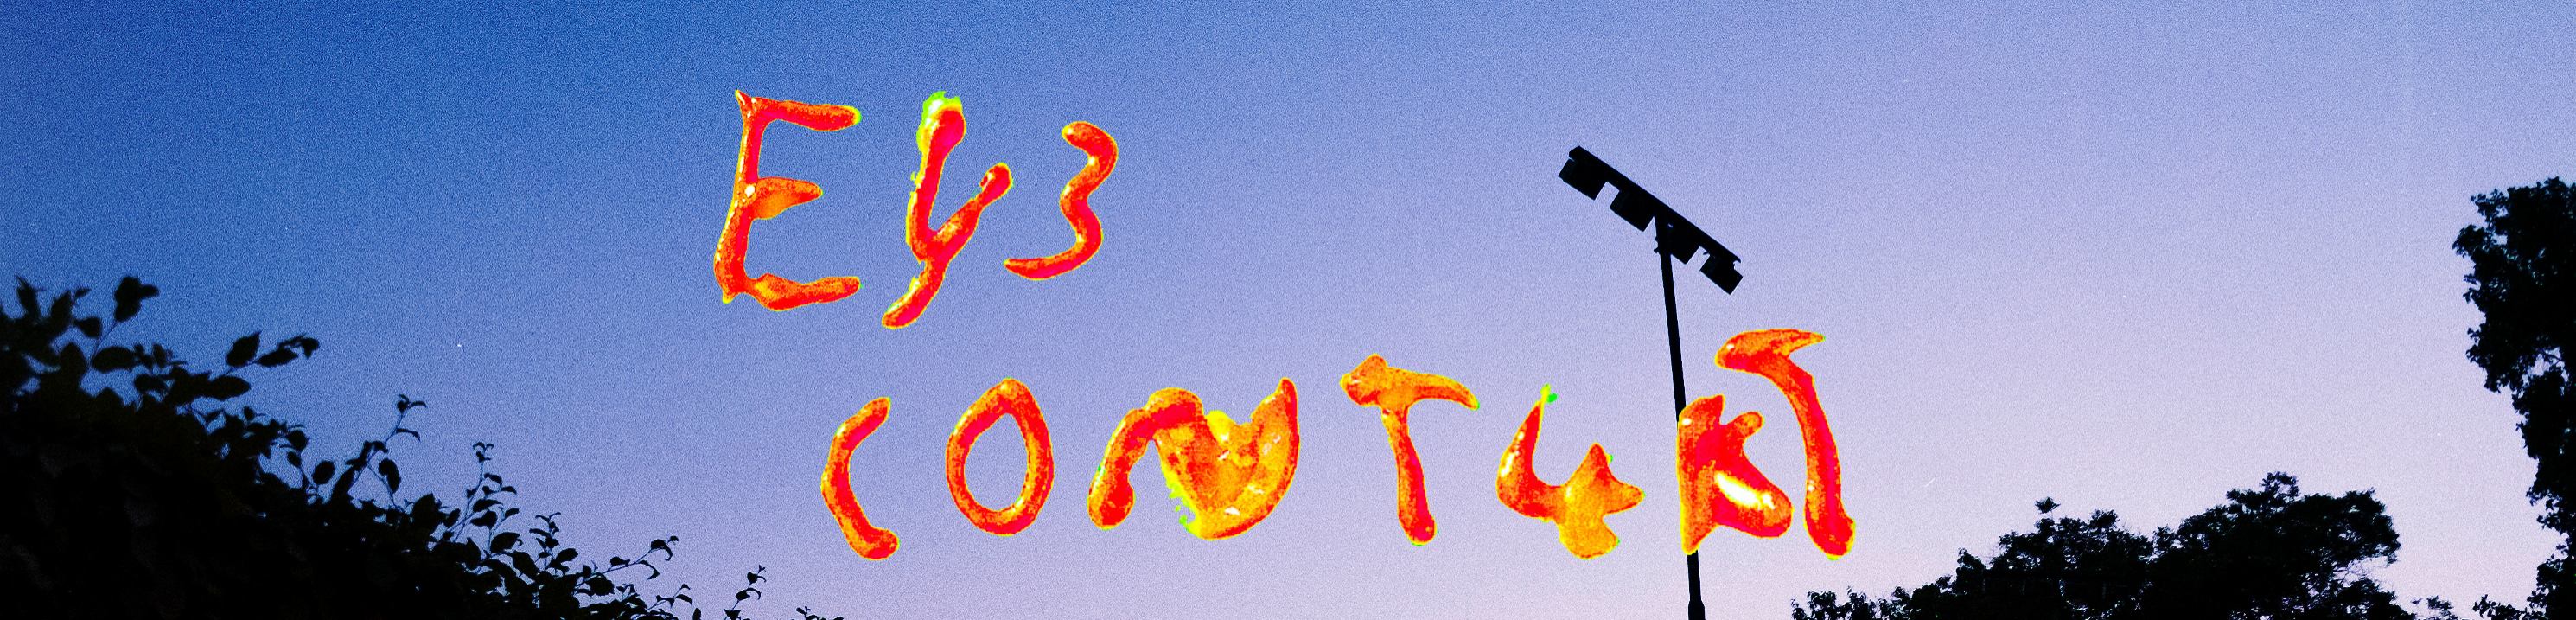 Ey3
CONT4KT